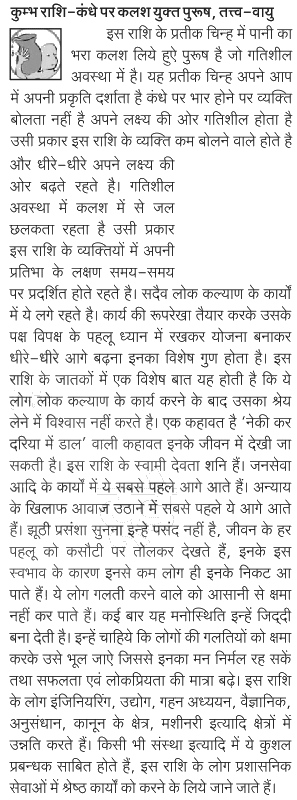 कुम्भ राशि–कंधे पर कलश युक्त पुरूष, तत्त्व–वायु
इस राशि के प्रतीक चिन्ह में पानी का
भरा कलश लिये हुऐ पुरूष है जो गतिशील
अवस्था में है। यह प्रतीक चिन्ह अपने आप
में अपनी प्रकृति दर्शाता है कंधे पर भार होने पर व्यक्ति
बोलता नहीं है अपने लक्ष्य की ओर गतिशील होता है
उसी प्रकार इस राशि के व्यक्ति कम बोलने वाले होते है
और धीरे–धीरे अपने लक्ष्य की
ओर बढ़ते रहते है। गतिशील
अवस्था में कलश में से जल
छलकता रहता है उसी प्रकार
इस राशि के व्यक्तियों में अपनी
प्रतिभा के लक्षण समय–समय
पर प्रदर्शित होते रहते है। सदैव लोक कल्याण के कार्यो
में ये लगे रहते है। कार्य की रूपरेखा तैयार करके उसके
पक्ष विपक्ष के पहलू ध्यान में रखकर योजना बनाकर
धीरे–धीरे आगे बढ़ना इनका विशेष गुण होता है। इस
राशि के जातकों में एक विशेष बात यह होती है कि ये
लोग लोक कल्याण के कार्य करने के बाद उसका श्रेय
लेने में विश्वास नहीं करते है। एक कहावत है 'नेकी कर
दरिया में डाल' वाली कहावत इनके जीवन में देखी जा
सकती है। इस राशि के स्वामी देवता शनि हैं। जनसेवा
आदि के कार्यो में ये सबसे पहले आगे आते हैं। अन्याय
के खिलाफ आवाज उठाने में सबसे पहले ये आगे आते
हैं। झूठी प्रसंशा सुनना इन्हे पसंद नहीं है, जीवन के हर
पहलू को कसौटी पर तोलकर देखते हैं, इनके इस
स्वभाव के कारण इनसे कम लोग ही इनके निकट आ
पाते हैं। ये लोग गलती करने वाले को आसानी से क्षमा
नहीं कर पाते हैं। कई बार यह मनोस्थिति इन्हें जिद्दी
बना देती है। इन्हें चाहिये कि लोगों की गलतियों को क्षमा
करके उसे भूल जाऐ जिससे इनका मन निर्मल रह सकें
तथा सफलता एवं लोकप्रियता की मात्रा बढ़े। इस राशि
के लोग इंजिनियरिंग, उद्योग, गहन अध्ययन, वैज्ञानिक,
अनुसंधान, कानून के क्षेत्र, मशीनरी इत्यादि क्षेत्रों में
उन्नति करते हैं। किसी भी संस्था इत्यादि में ये कुशल
प्रबन्धक साबित होते हैं, इस राशि के लोग प्रशासनिक
सेवाओं में श्रेष्ठ कार्यो को करने के लिये जाने जाते हैं।